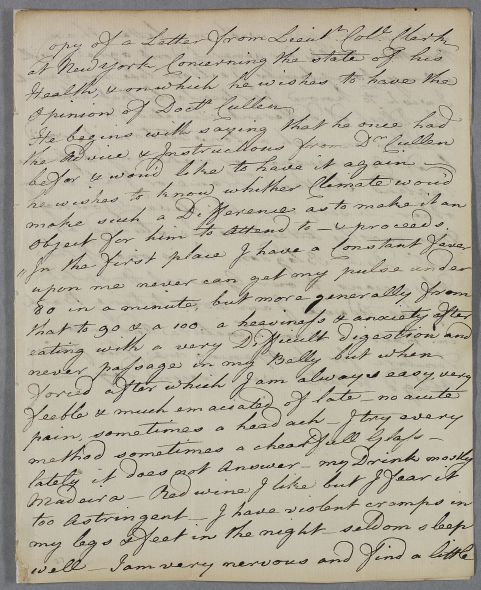 opy of a Letter from Lieut.t Col.l Clark
at New York Concerning the state of his
Health, & on which he wishes to have the
Opinion of Doct.r Cullen
He begins with saying that he once had
the Advice & Instructions from D.r Cullen
befor & woud like to have it again —
he wishes to know whither Climate woud
make such a Difference as to make it an
Object for him to attend to — & proceeds.
"In the first place I have a Constant fever
upon me never can get my pulse under
80 in a minute, but more generally from
that to 90 & a 100 a heaviness & anxiety after
eating with a very Difficult digestion and
never passage in my Belly but when
forced after which I am always easy very
feeble & much emaciated of late — no acute
pain, sometimes a headach — I try every
method sometimes a chearfull Glass —
lately it does not Answer — my Drink mostly
Madeira — Red wine I like but I fear it
too Astringent — I have violent cramps in
my legs & feet in the night — seldom sleep
well — I am very nervous and find a little